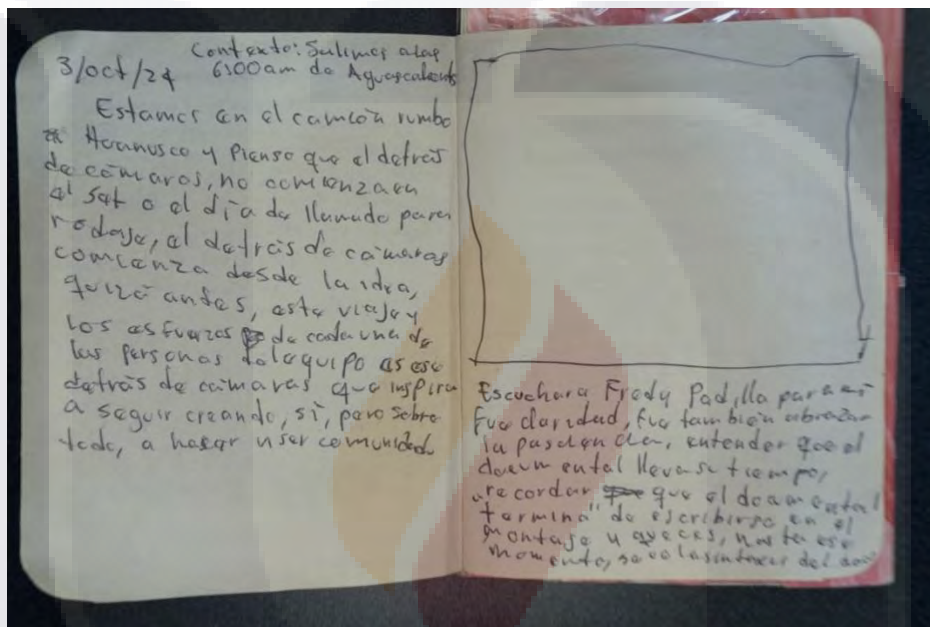 3/oct/24
Contexto: Salimos a las
6:00am de Aguascalients
Estamos en el camión rumbo
a Huanusco y Pienso que el detrás
de cámaras, no comienza en
el set o el día de llamado para
rodaje, el detrás de cámaras
comienza desde la idea,
quizá antes, este viaje y
los esfuerzos de cada una de
las personas del equipo es ese
detrás de cámaras que inspira
a seguir creando, sí, pero sobre
todo, a hacer y ser comunidad
Escuchar a Fredy Padilla para mí
fue claridad, fue también abrazar
la paciencia, entender que el
documental lleva su tiempo,
recordar que el documental
"termina" de escribirse en el
montaje y a veces, hasta ese
momento, se ve la sintexis del